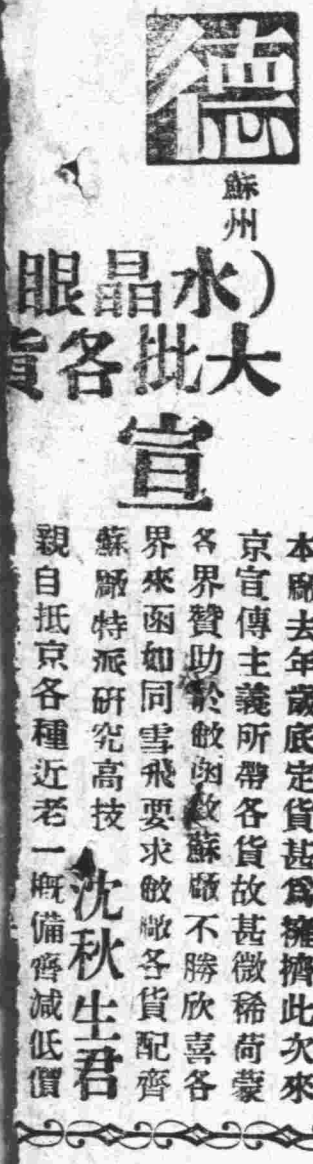 德
蘇州
(水晶眼
大批各貨
宣
本廠去年歲底定貨甚爲擁擠此次來
京宣傳主義所帶各貨故甚微稀荷蒙
各界贊助於敝函致蘇廠不勝欣喜各
界來函如同雪飛要求敝廠各貨配齊
蘇廠特派研究高技 沈秋生君
親自抵京各種近老一概備齊減低價